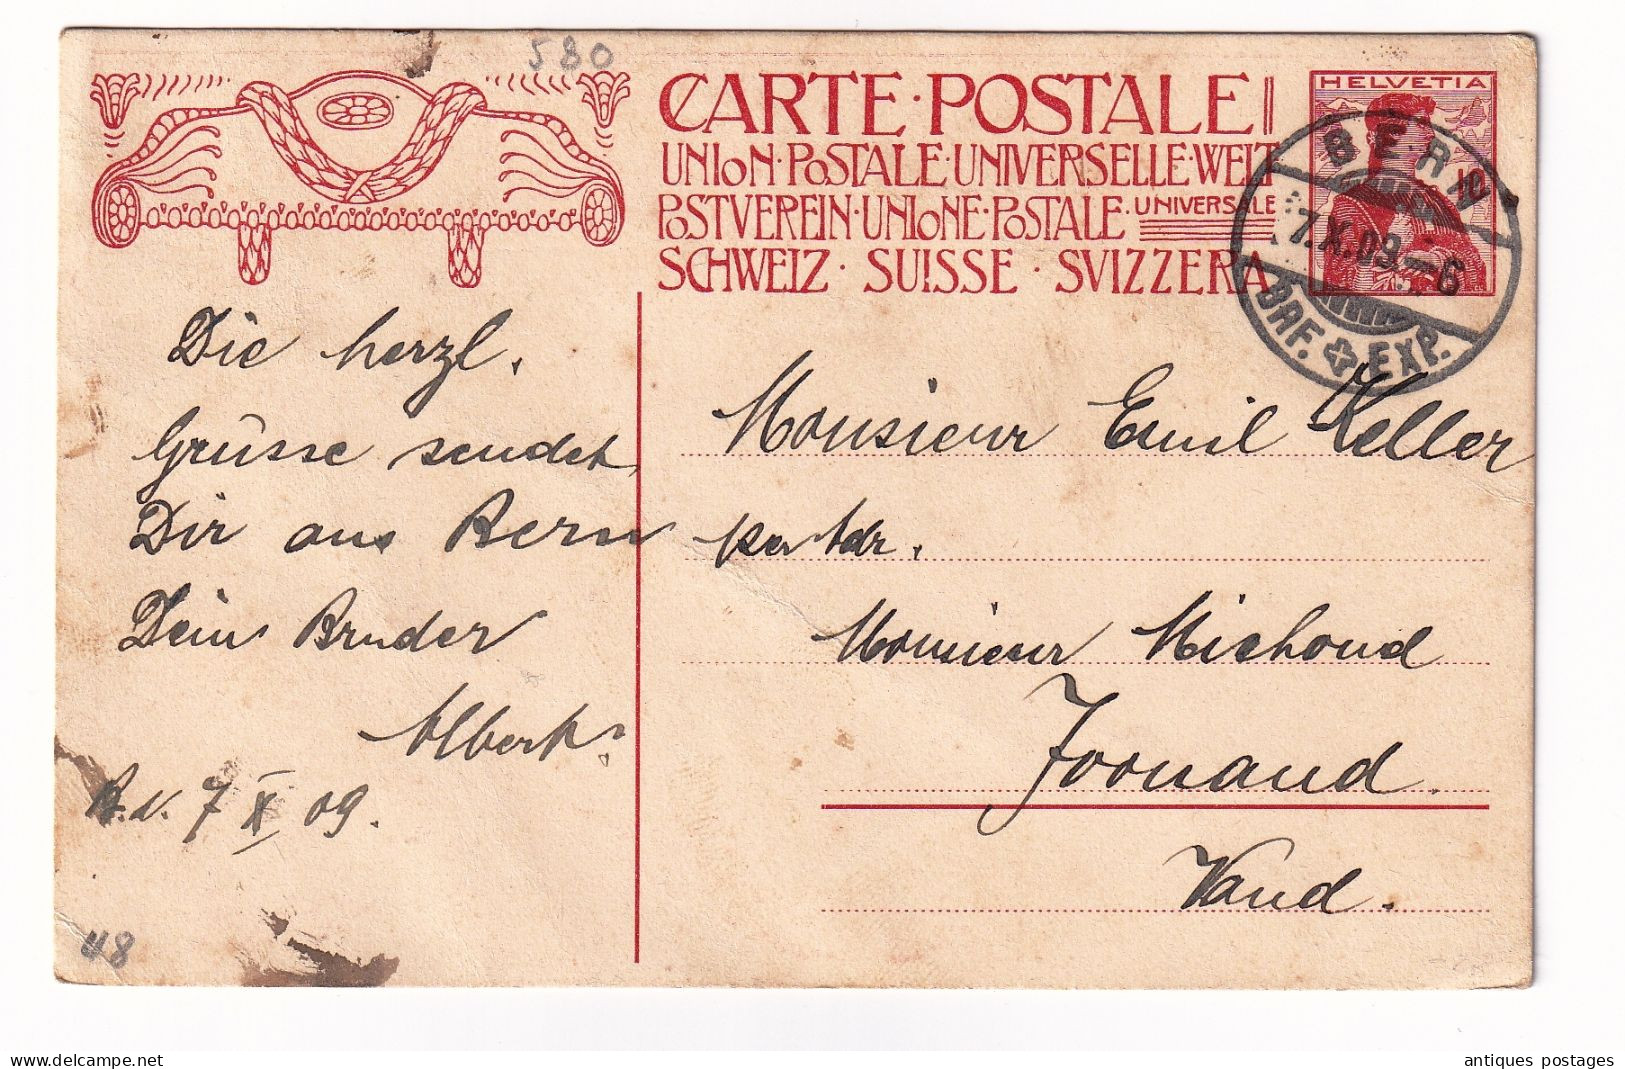 580
CARTE·POSTALE
UNION·POSTALE·UNIVERSELLE·WELT
POSTVEREIN·UNIONE·POSTALE·UNIVERSALE
SCHWEIZ·SUISSE·SVIZZERA
HELVETIA
10
BERN
7.X.09.—6
BRF. EXP.
Die herzl.
Grüsse sendet
Dir aus Bern
Dein Bruder
Albert.
B. d. 7 X 09.
Monsieur Emil Keller
per Adr.
Monsieur Michoud
Vaud.
48
delcampe.net
antiques postages